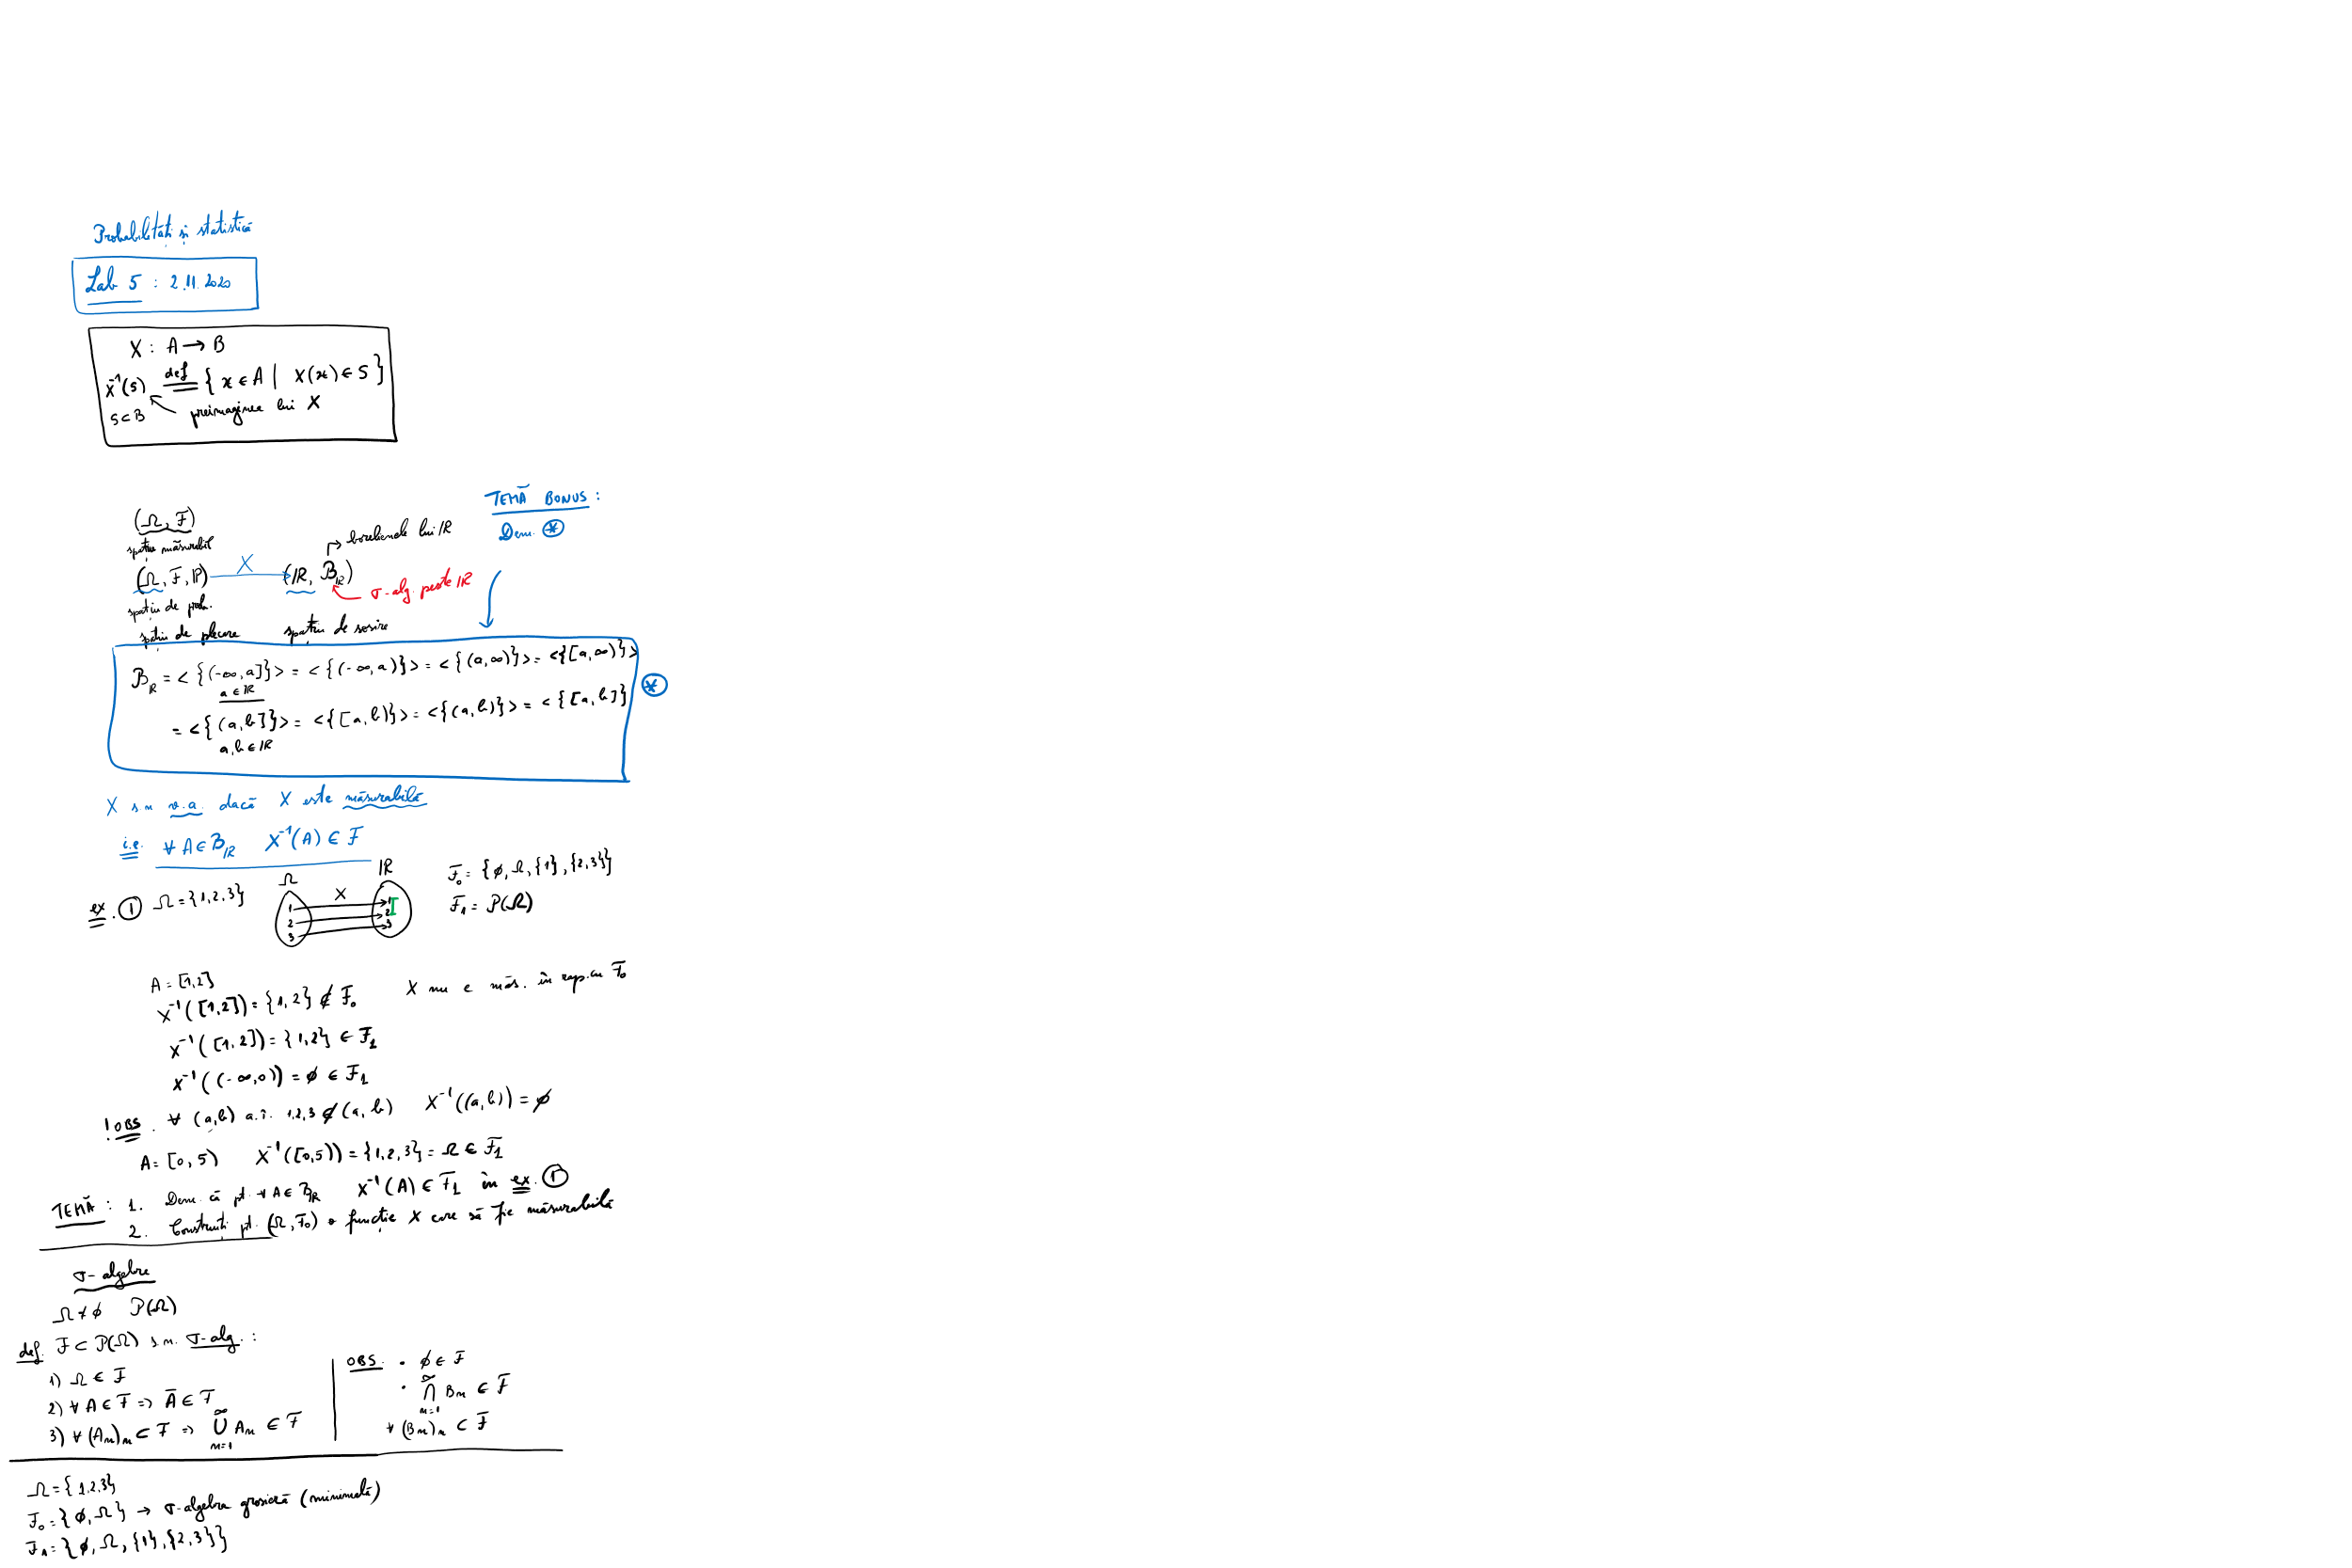 Probabilități și statistică
Lab 5 : 2.11.2020
X : A → B
X⁻¹(S) def { x ∈ A | X(x) ∈ S }
S ⊂ B preimaginea lui X
TEMĂ BONUS :
Dem. ⊛
(Ω, F)
spațiu măsurabil
borelienele lui IR
(Ω, F, P) X (IR, B_IR)
σ-alg. peste IR
spațiu de prob.
spațiu de plecare spațiu de sosire
B_IR = < {(-∞, a]} > = < {(-∞, a)} > = < {(a, ∞)} > = <{[a, ∞)}>
a ∈ IR
= < {(a, b]} > = < {[a, b)} > = <{(a, b)} > = < {[a, b]}
a, b ∈ IR
⊛
X s n v.a. dacă X este măsurabilă
i.e. ∀ A ∈ B_IR X⁻¹(A) ∈ F
ex. ① Ω = {1,2,3}
Ω X IR
1 1
2 2
3 3
F₀ = {∅, Ω, {1}, {2,3}}
F₁ = P(Ω)
A = [1,2]
X⁻¹([1,2]) = {1,2} ∉ F₀ X nu e măs. în rap. cu F₀
X⁻¹([1,2]) = {1,2} ∈ F₁
X⁻¹((-∞,0)) = ∅ ∈ F₁
! OBS. ∀ (a,b) a.î. 1,2,3 ∉ (a, b) X⁻¹((a,b)) = ∅
A = [0,5) X⁻¹([0,5)) = {1,2,3} = Ω ∈ F₁
TEMĂ : 1. Dem. că pt. ∀ A ∈ B_IR X⁻¹(A) ∈ F₁ în ex. ①
2. Construiți pt. (Ω, F₀) o funcție X care să fie măsurabilă
σ-algebre
Ω ≠ ∅ P(Ω)
def. F ⊂ P(Ω) s.n. σ-alg. :
1) Ω ∈ F
2) ∀ A ∈ F => Ā ∈ F
3) ∀ (Aₙ)ₙ ⊂ F => ⋃_{n=1}^{∞} Aₙ ∈ F
OBS. • ∅ ∈ F
• ⋂_{n=1}^{∞} Bₙ ∈ F
∀ (Bₙ)ₙ ⊂ F
Ω = {1,2,3}
F₀ = {∅, Ω} → σ-algebra grosieră (minimală)
F₁ = {∅, Ω, {1}, {2,3}}